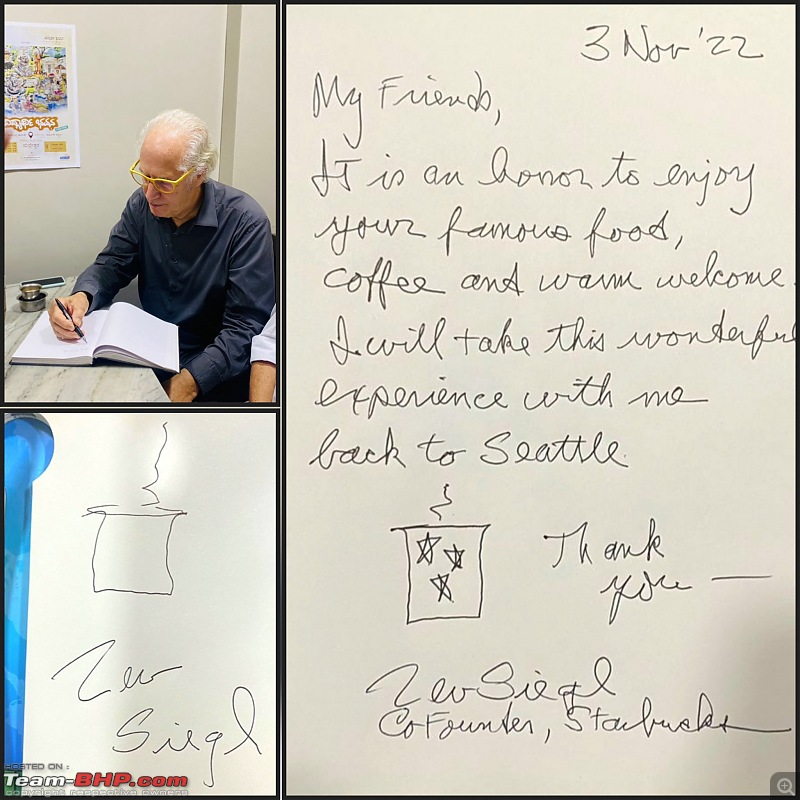 3 Nov '22
My Friends,
It is an honor to enjoy
your famous food,
coffee and warm welcome.
I will take this wonderful
experience with me
back to Seattle.
Thank
you —
Zev Siegl
CoFounder, Starbucks
Zev
Siegl
HOSTED ON :
Team-BHP.com
copyright respective owners